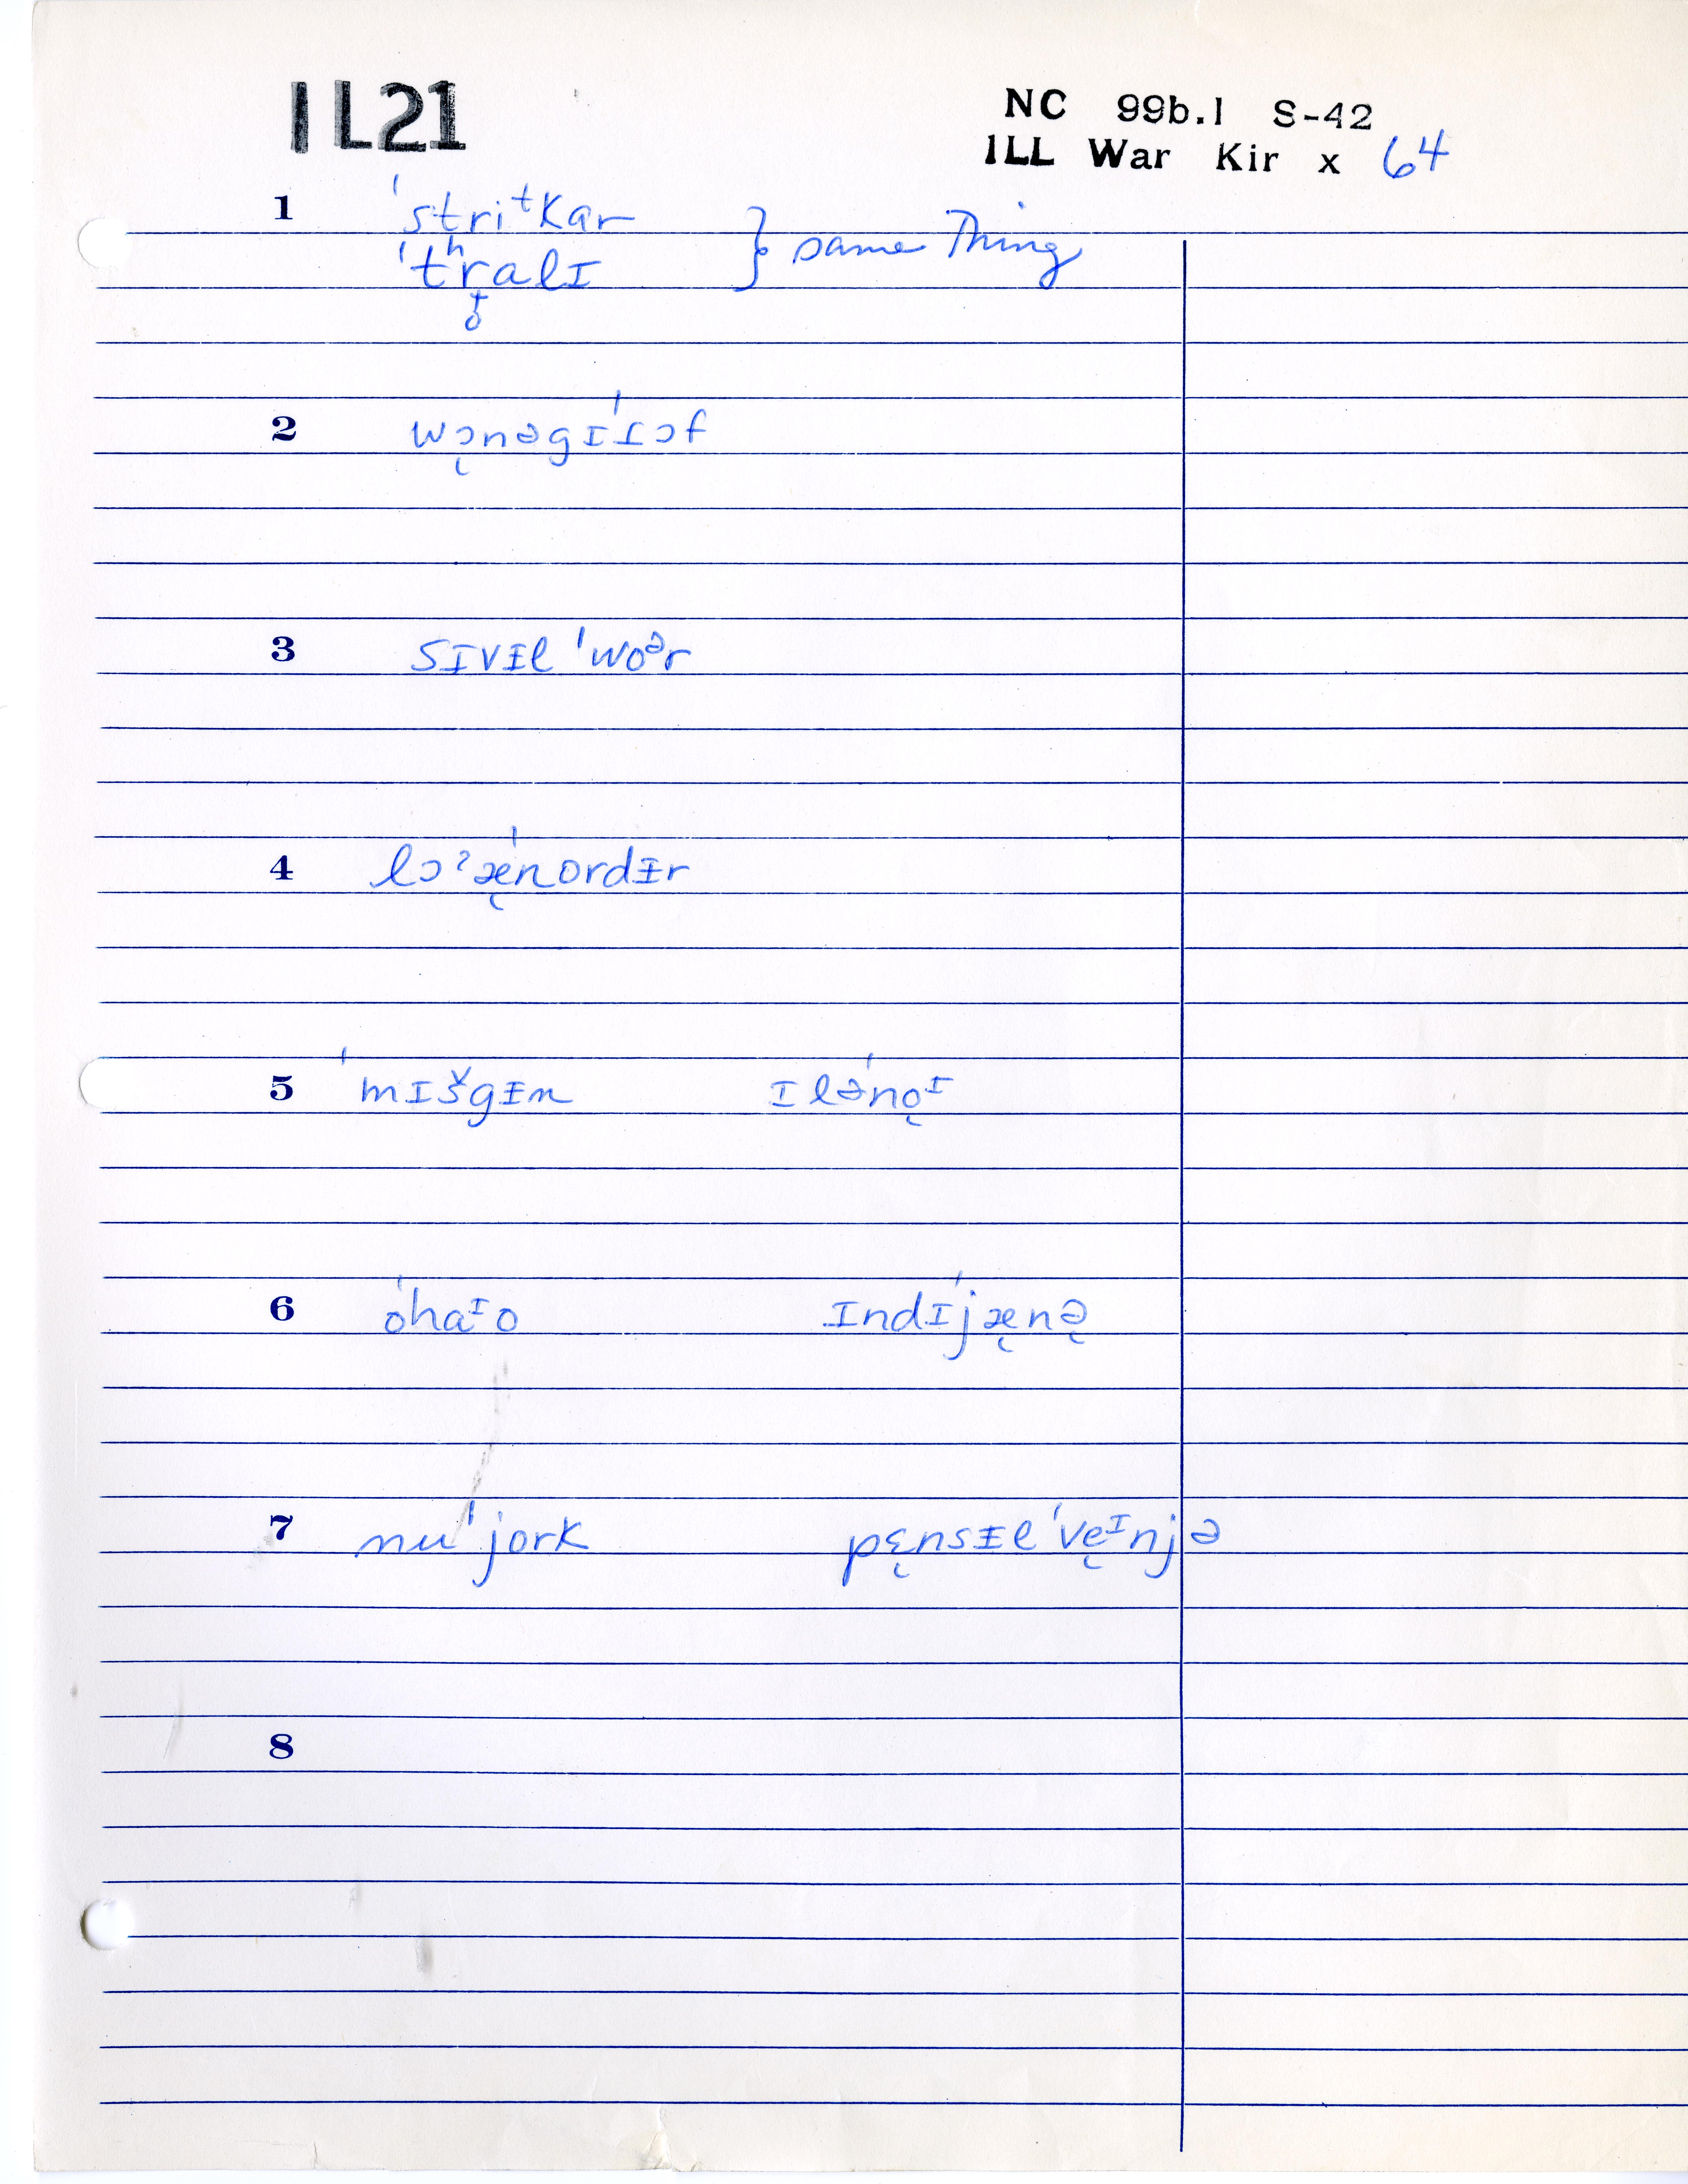 IL21
NC 99b.1 S-42
ILL War Kir x 64
1 ˈstriᵗkar
ˈtʰr̥alɪ } same Thing
2 wɔ̜nəgɪ́ɾɔf
3 sɪvɪ̵l ˈwoᵊr
4 lɔˀǽ̜nordɪ̵r
5 ˈmɪšgɪ̵n ɪlə́no̜ᶦ
6 óhaᶦo ɪndɪ́jæ̜nə̜
7 nuˈjork pɛ̜nsɪ̵lˈve̜ᶦnjə
8